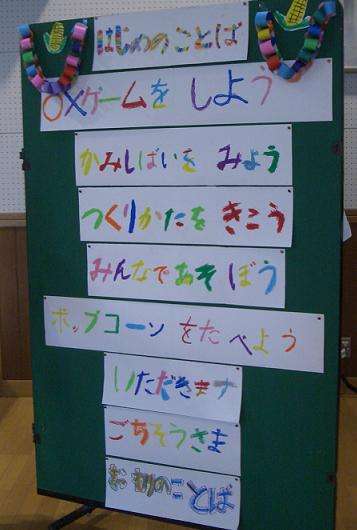 はじめのことば
○×ゲームを しよう
かみしばいを みよう
つくりかたを きこう
みんなであそぼう
ポップコーンをたべよう
いただきます
ごちそうさま
お別のことば